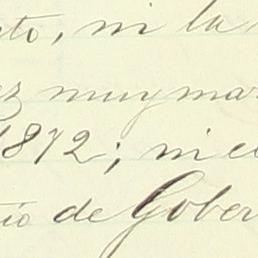 sto, ni la
ez muy mar
1872; ni e
tio de Gober